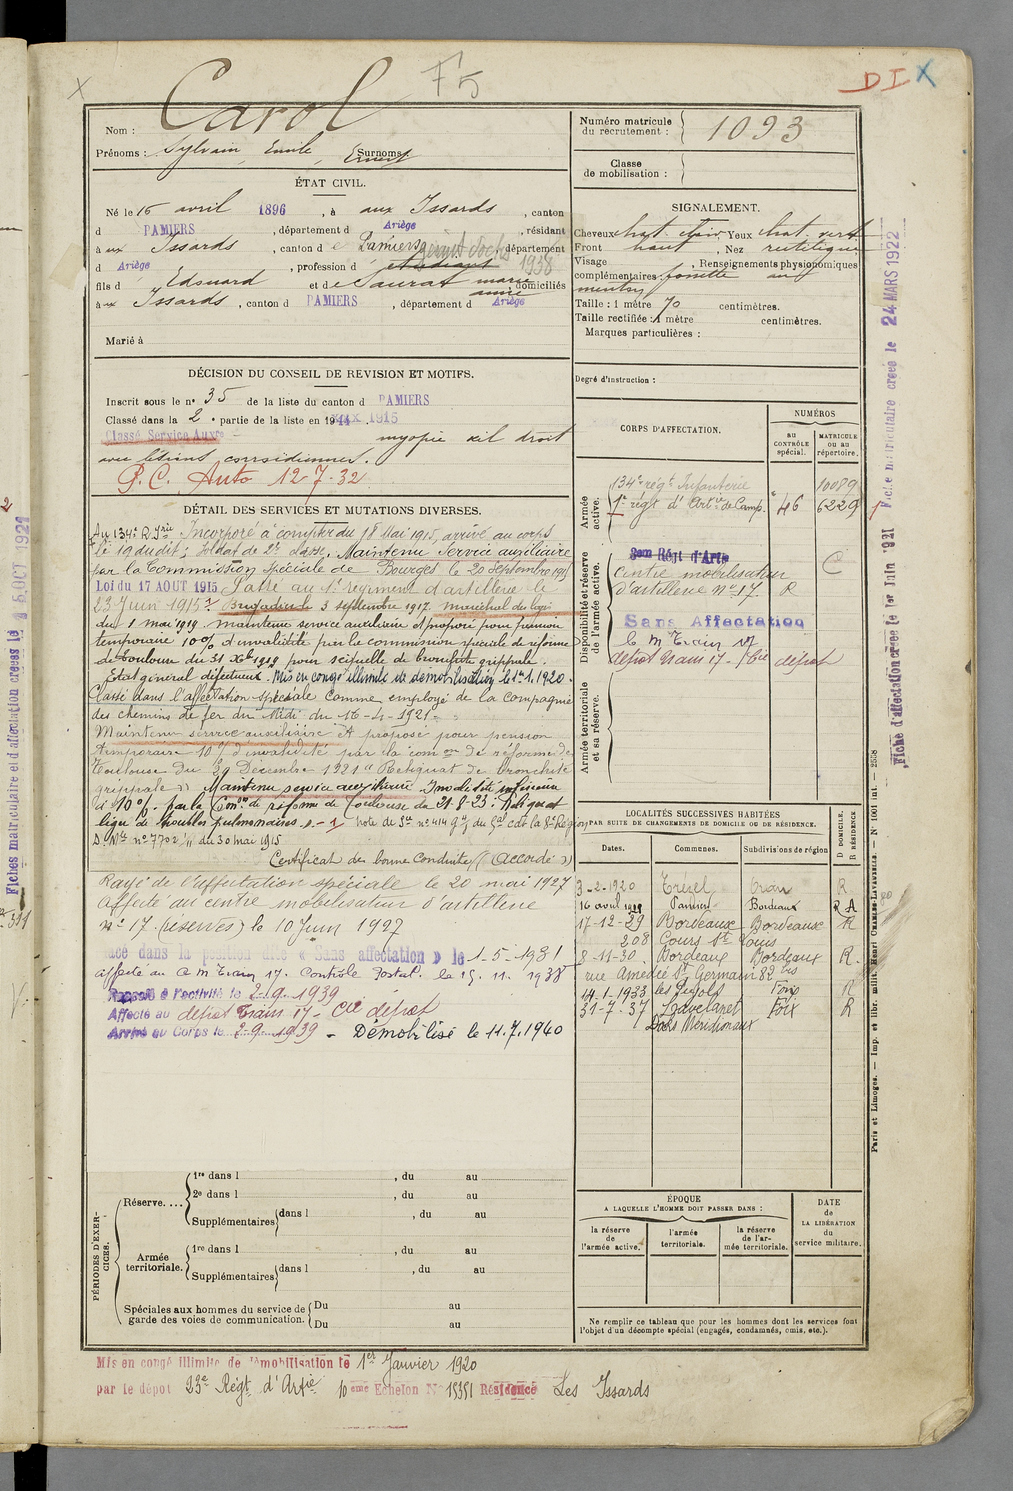 X
F5
DI X
Nom : Carol
Prénoms : Sylvain, Emile, Ernest
Surnoms
Numéro matricule du recrutement : 1093
Classe de mobilisation :
ÉTAT CIVIL.
Né le 15 avril 1896, à aux Issards, canton
d PAMIERS, département d Ariège, résidant
à aux Issards, canton de Pamiers, département
d Ariège, profession d étudiant 1938
fils d Edouard et de Saurat marie anne, domiciliés
à aux Issards, canton d PAMIERS, département d Ariège
Marié à
SIGNALEMENT.
Cheveux chat. clair Yeux chat. verts
Front haut, Nez rectiligne
Visage , Renseignements physionomiques
complémentaires : fossette au
menton
Taille : 1 mètre 70 centimètres.
Taille rectifiée : 1 mètre centimètres.
Marques particulières :
Degré d'instruction :
DÉCISION DU CONSEIL DE REVISION ET MOTIFS.
Inscrit sous le n° 35 de la liste du canton d PAMIERS
Classé dans la 2e partie de la liste en 1915
Classé Service Auxre - myopie œil droit
avec lésions choroïdiennes.
P.C. Auto 12-7-32
DÉTAIL DES SERVICES ET MUTATIONS DIVERSES.
Au 134e R. Irie Incorporé à compter du 18 Mai 1915, arrivé au corps
le 19 du dit; Soldat de 2e classe. Maintenu Service auxiliaire
par la Commission spéciale de Bourges le 20 septembre 1915
Loi du 17 AOUT 1915 Passé au 1e régiment d'artillerie le
23 Juin 1915 Brigadier le 3 septembre 1917. maréchal des logis
du 1 mai 1919. maintenu service auxiliaire et proposé pour pension
temporaire 10% d'invalidité par la commission spéciale de réforme
de Toulouse du 31 Xbre 1919 pour séquelle de bronchite grippale.
Etat général défectueux. Mis en congé illimité de démobilisation le 1er 1.1920.
Classé dans l'affectation spéciale comme employé de la Compagnie
des chemins de fer du Midi du 16-4-1921.
Maintenu service auxiliaire et proposé pour pension
temporaire 10% d'invalidité par la com on de réforme de
Toulouse du 29 Décembre 1921 "Reliquat de bronchite
grippale" Maintenu service auxiliaire Invalidité inférieure
à 10% par la Con on de réforme de Toulouse du 21-8-23 : Reliquat
léger de troubles pulmonaires.
D. Mlle n° 7702/11 du 30 mai 1915
Certificat de bonne conduite (Accordé)
Rayé de l'affectation spéciale le 20 mai 1927
Affecté au centre mobilisateur d'artillerie
n° 17. (réserves) le 10 Juin 1927
acé dans la position dite « Sans affectation » le 1-5-1931
affecté au C M Train 17. Contrôle Postal. le 15. 11. 1938
Rappelé à l'activité le 2-9-1939
Affecté au dépot Train 17 - Cie dépot
Arrivé au Corps le 2-9-1939 - Démobilisé le 11.7.1940
CORPS D'AFFECTATION.
NUMÉROS
AU CONTRÔLE spécial.
MATRICULE ou au répertoire.
Armée active.
134e régt Infanterie 10089
1er régt d'Artie de Camp. 46 6229
Disponibilité et réserve de l'armée active.
3em Régt d'Artie
Centre mobilisateur
d'artillerie No 17. R
Sans Affectation
C M Train 17
dépot Train 17 - Cie dépot
Armée territoriale et sa réserve.
LOCALITÉS SUCCESSIVES HABITÉES
PAR SUITE DE CHANGEMENTS DE DOMICILE OU DE RÉSIDENCE.
Dates. Communes. Subdivisions de région
D DOMICILE. R RÉSIDENCE
3-2-1920 Trézel Oran R
16 avril 1921 Pamiers Bordeaux R A
17-12-29 Bordeaux Bordeaux R
208 Cours St Louis
8-11-30 Bordeaux Bordeaux R
rue Amédée St Germain 82 bis
14-1-1933 les Pujols Foix R
31-7-37 Lavelanet Foix R
Docks Méridionaux
PÉRIODES D'EXERCICES.
Réserve....
1re dans l , du au
2e dans l , du au
Supplémentaires dans l , du au
Armée territoriale.
1re dans l , du au
Supplémentaires dans l , du au
Spéciales aux hommes du service de garde des voies de communication.
Du au
Du au
ÉPOQUE
A LAQUELLE L'HOMME DOIT PASSER DANS :
la réserve de l'armée active.
l'armée territoriale.
la réserve de l'armée territoriale.
DATE de LA LIBÉRATION du service militaire.
Ne remplir ce tableau que pour les hommes dont les services font
l'objet d'un décompte spécial (engagés, condamnés, omis, etc.).
Mis en congé illimité de démobilisation le 1er Janvier 1920
par le dépot 23e Régt d'Artie 10eme Echelon N° 15351 Résidence Les Issards
Fiche matriculaire créée le 24 MARS 1922
Fiche d'affectation créée le 1er Juin 1921
Paris et Limoges. — Imp. et libr. milit. Henri CHARLES-LAVAUZELLE. — N° 1001 int. — 2558
Fiches matriculaire et d'affectation créées le 15 OCT 1921